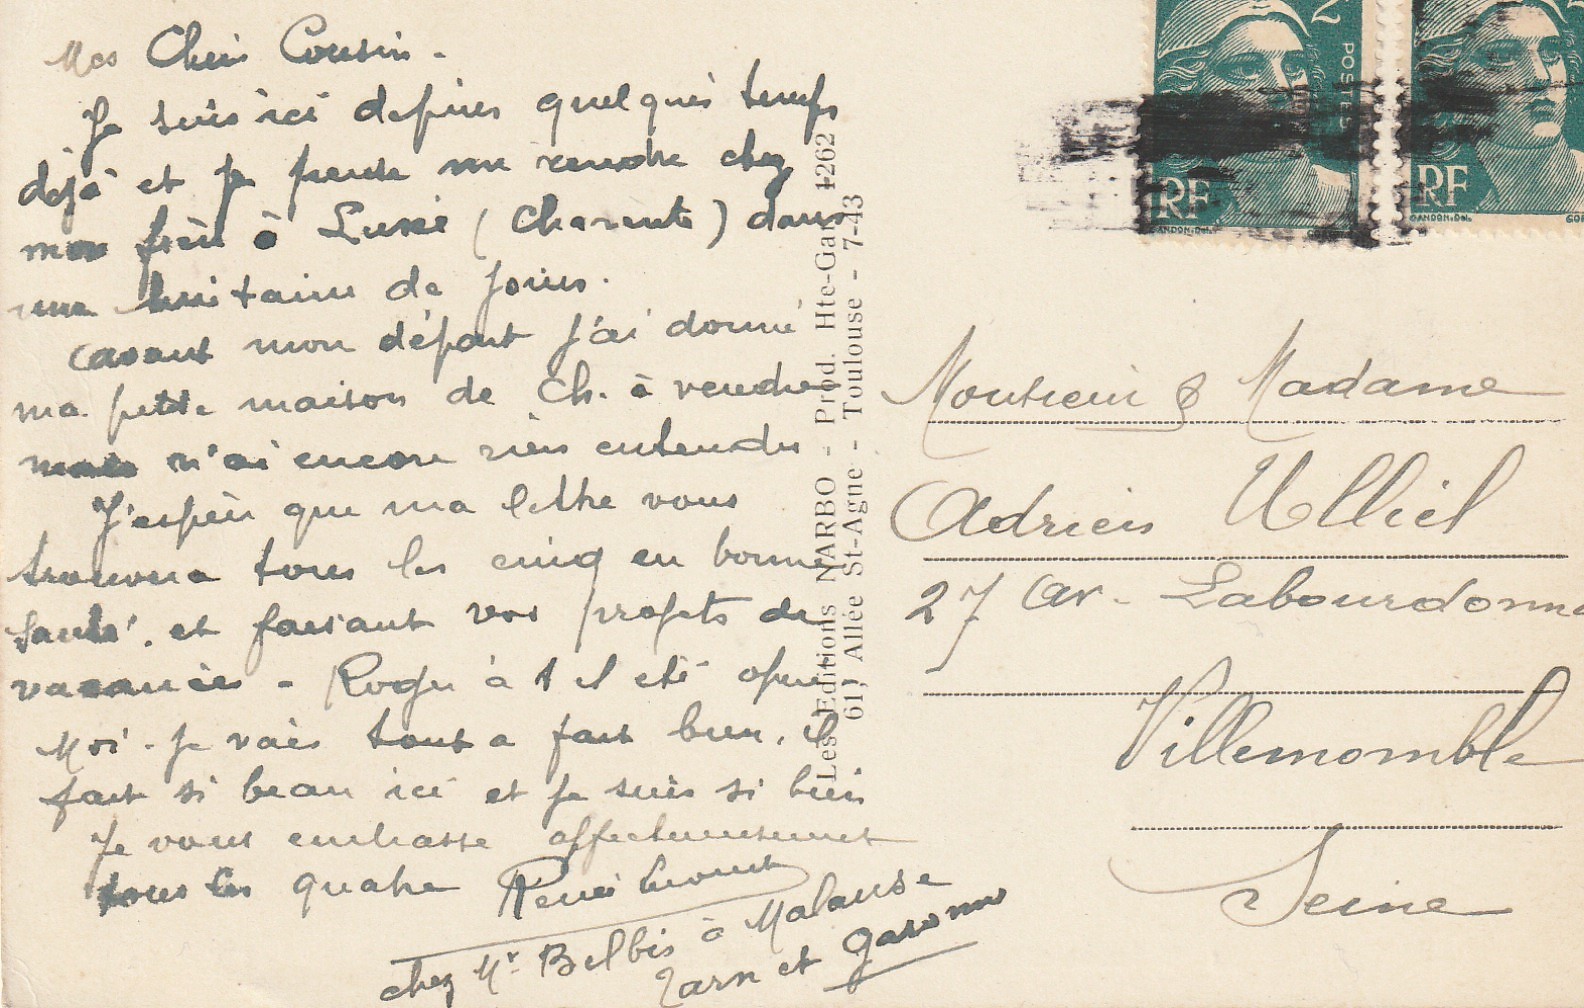 Mes Chers Cousin -
Je suis ici depuis quelques temps
déjà et je pense me rendre chez
mon frère à Lussé (Charente) dans
une huitaine de jours.
avant mon départ j'ai donné
ma petite maison de Ch. à vendre
mais n'ai encore rien entendu
J'espère que ma lettre vous
trouvera tous les cinq en bonne
santé, et faisant vos projets de
vacances - Roger à t il été opéré
Moi - Je vais tout a fait bien, il
fait si beau ici et je suis si bien
Je vous embrasse affectueusement
tous les quatre Renée
chez Mr Belbis à Malause
Tarn et Garonne
Les Editions NARBO - Prod. Hte-Gar. 1262
61, Allée St-Agne - Toulouse - 7-43
2 POSTES
RF
GANDON.Del.
RF
GANDON.Del.
Monsieur & Madame
Adrien Ulliel
27 av. Labourdonnais
Villemomble
Seine